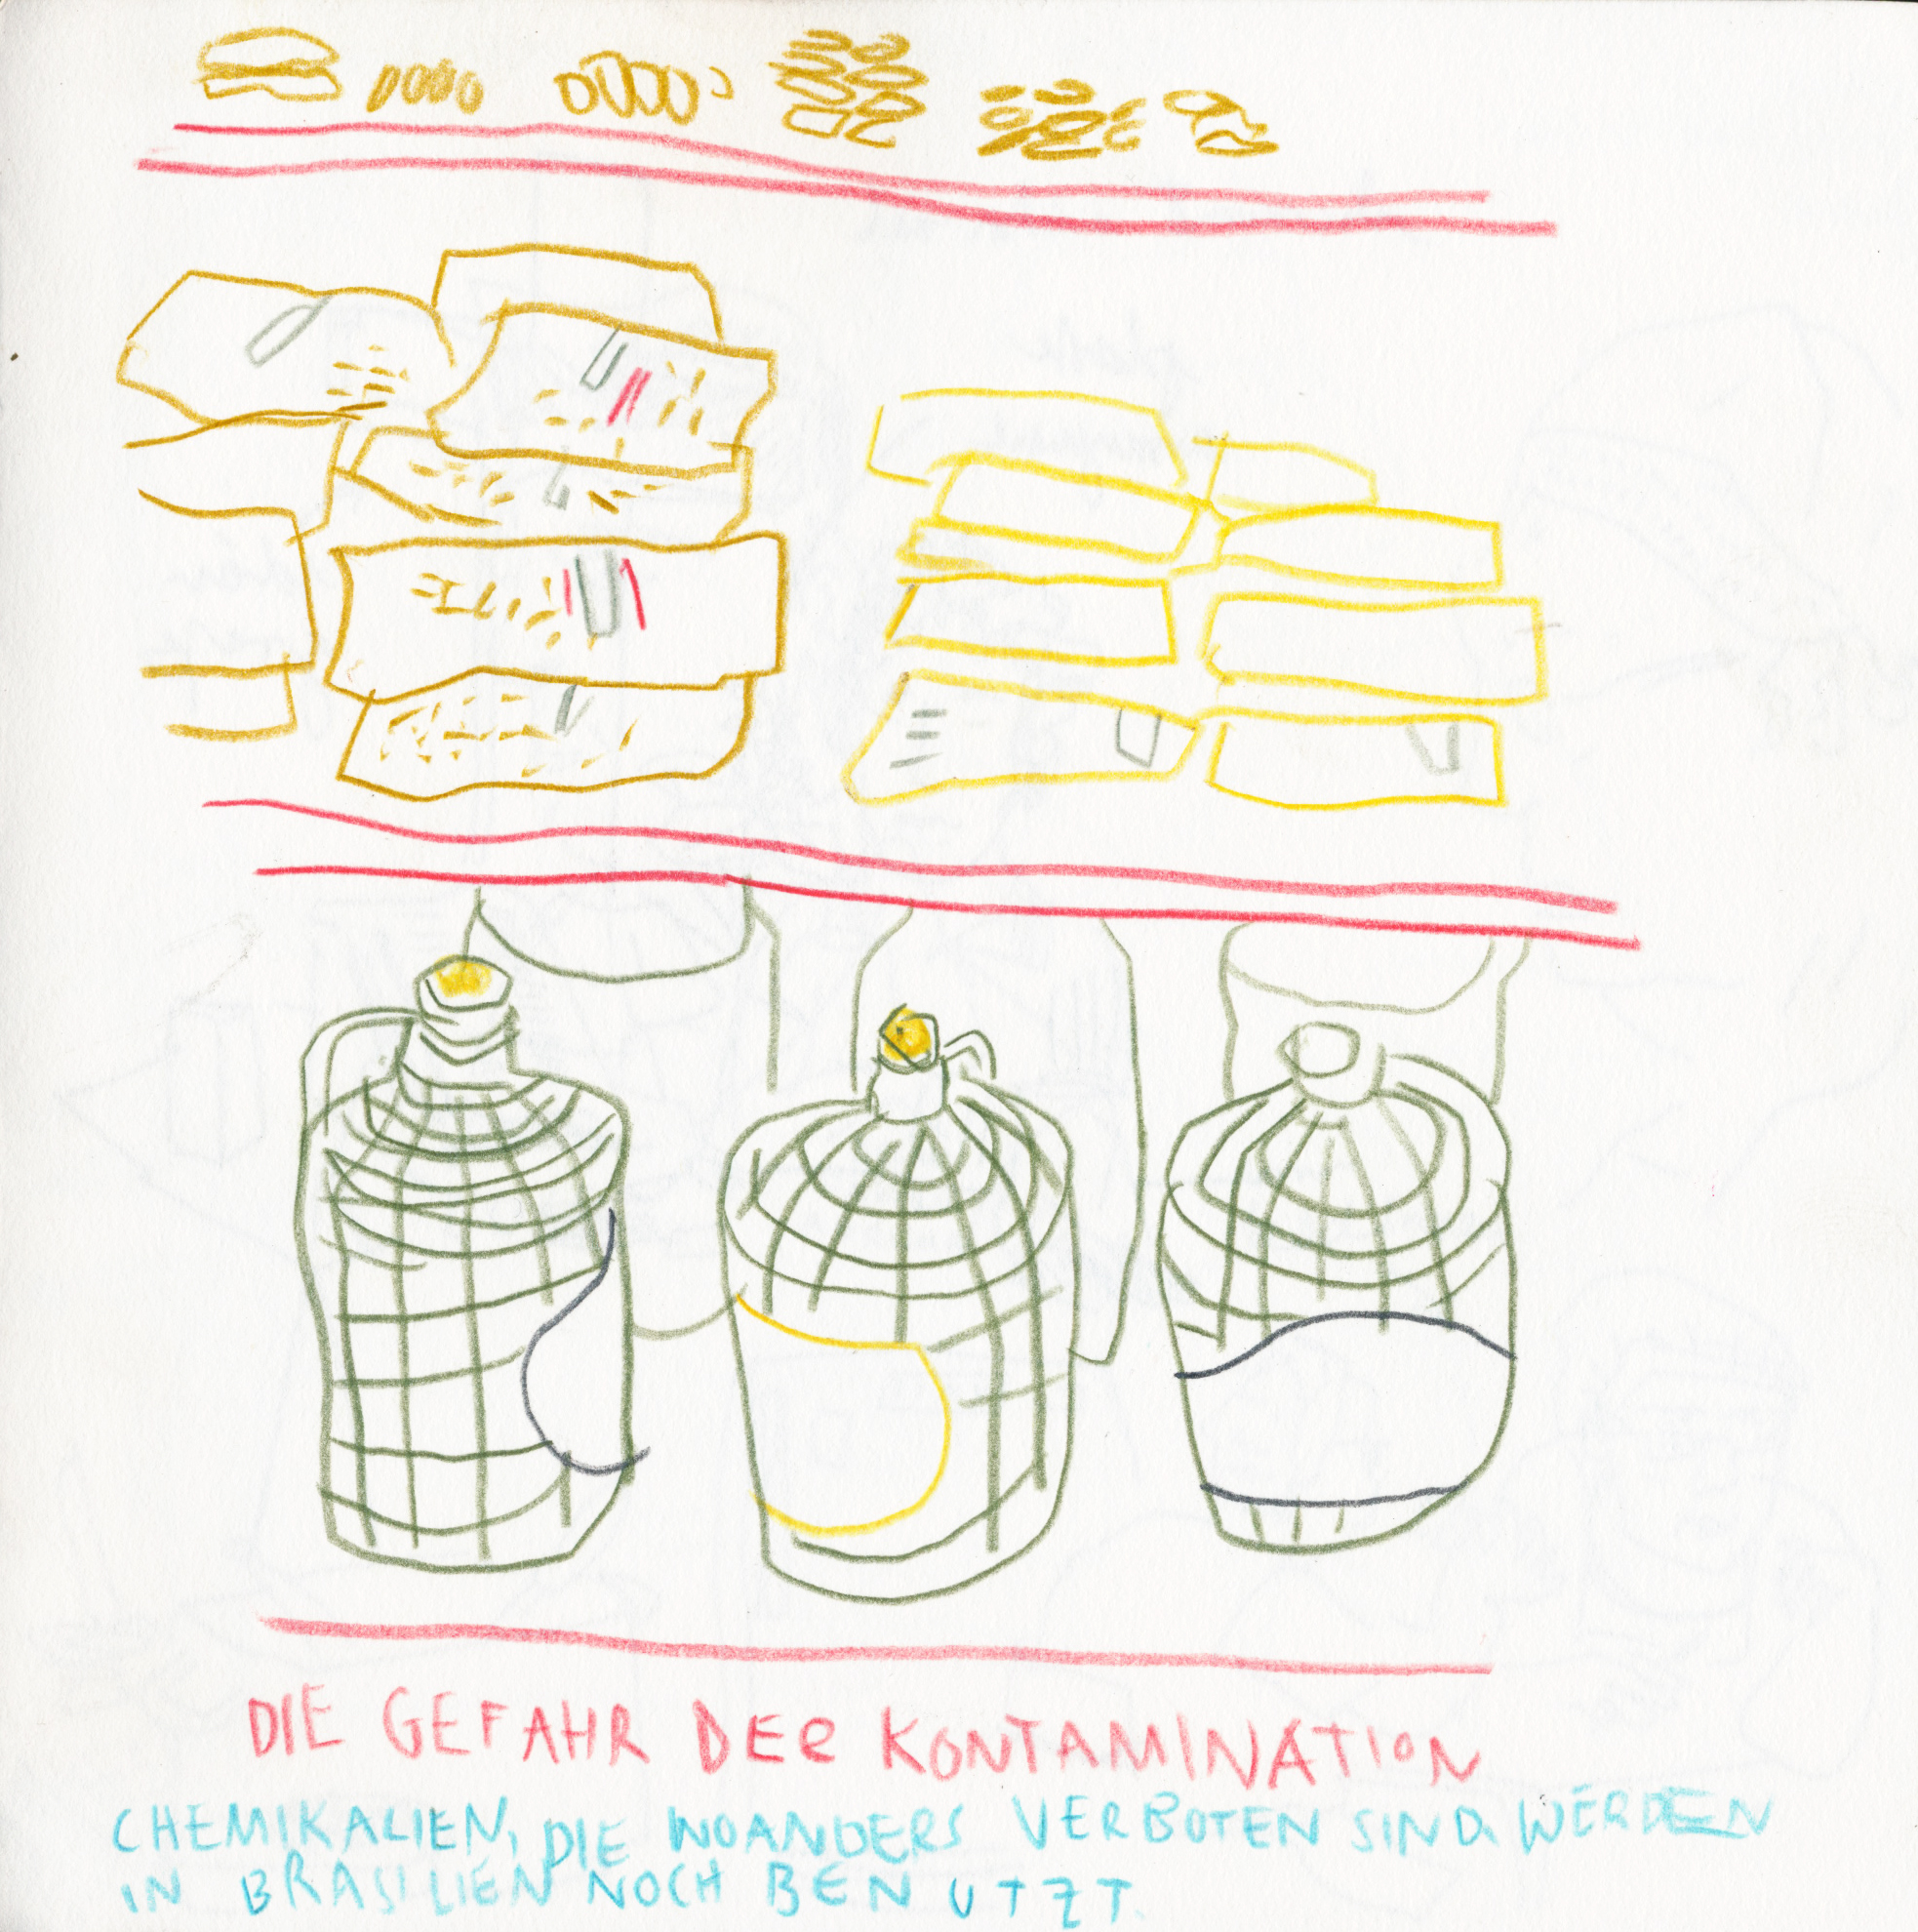 DIE GEFAHR DER KONTAMINATION
CHEMIKALIEN, DIE WOANDERS VERBOTEN SIND, WERDEN
IN BRASILIEN NOCH BENUTZT.